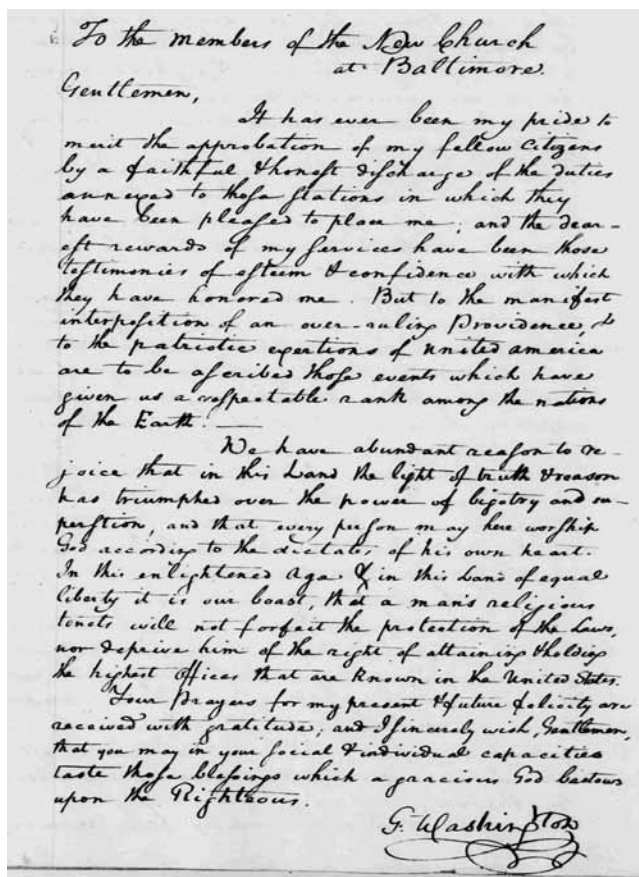 To the members of the New Church
at Baltimore.
Gentlemen,
It has ever been my pride to
merit the approbation of my fellow citizens
by a faithful & honest discharge of the duties
annexed to those stations in which they
have been pleased to place me; and the dear-
est rewards of my services have been those
testimonies of esteem & confidence with which
they have honored me. But to the manifest
interposition of an over-ruling Providence, &
to the patriotic exertions of united america
are to be ascribed those events which have
given us a respectable rank among the nations
of the Earth. —
We have abundant reason to re-
joice that in this Land the light of truth & reason
has triumphed over the power of bigotry and su-
perstion, and that every person may here worship
God according to the dictates of his own heart.
In this enlightened age & in this Land of equal
liberty it is our boast, that a man's religious
tenets will not forfeit the protection of the Laws,
nor deprive him of the right of attaining & holding
the highest offices that are known in the United States.
Your Prayers for my present & future felicity are
received with gratitude; and I sincerely wish, Gentlemen,
that you may in your social & individual capacities
taste those blessings which a gracious God bestows
upon the Righteous.
G. Washington